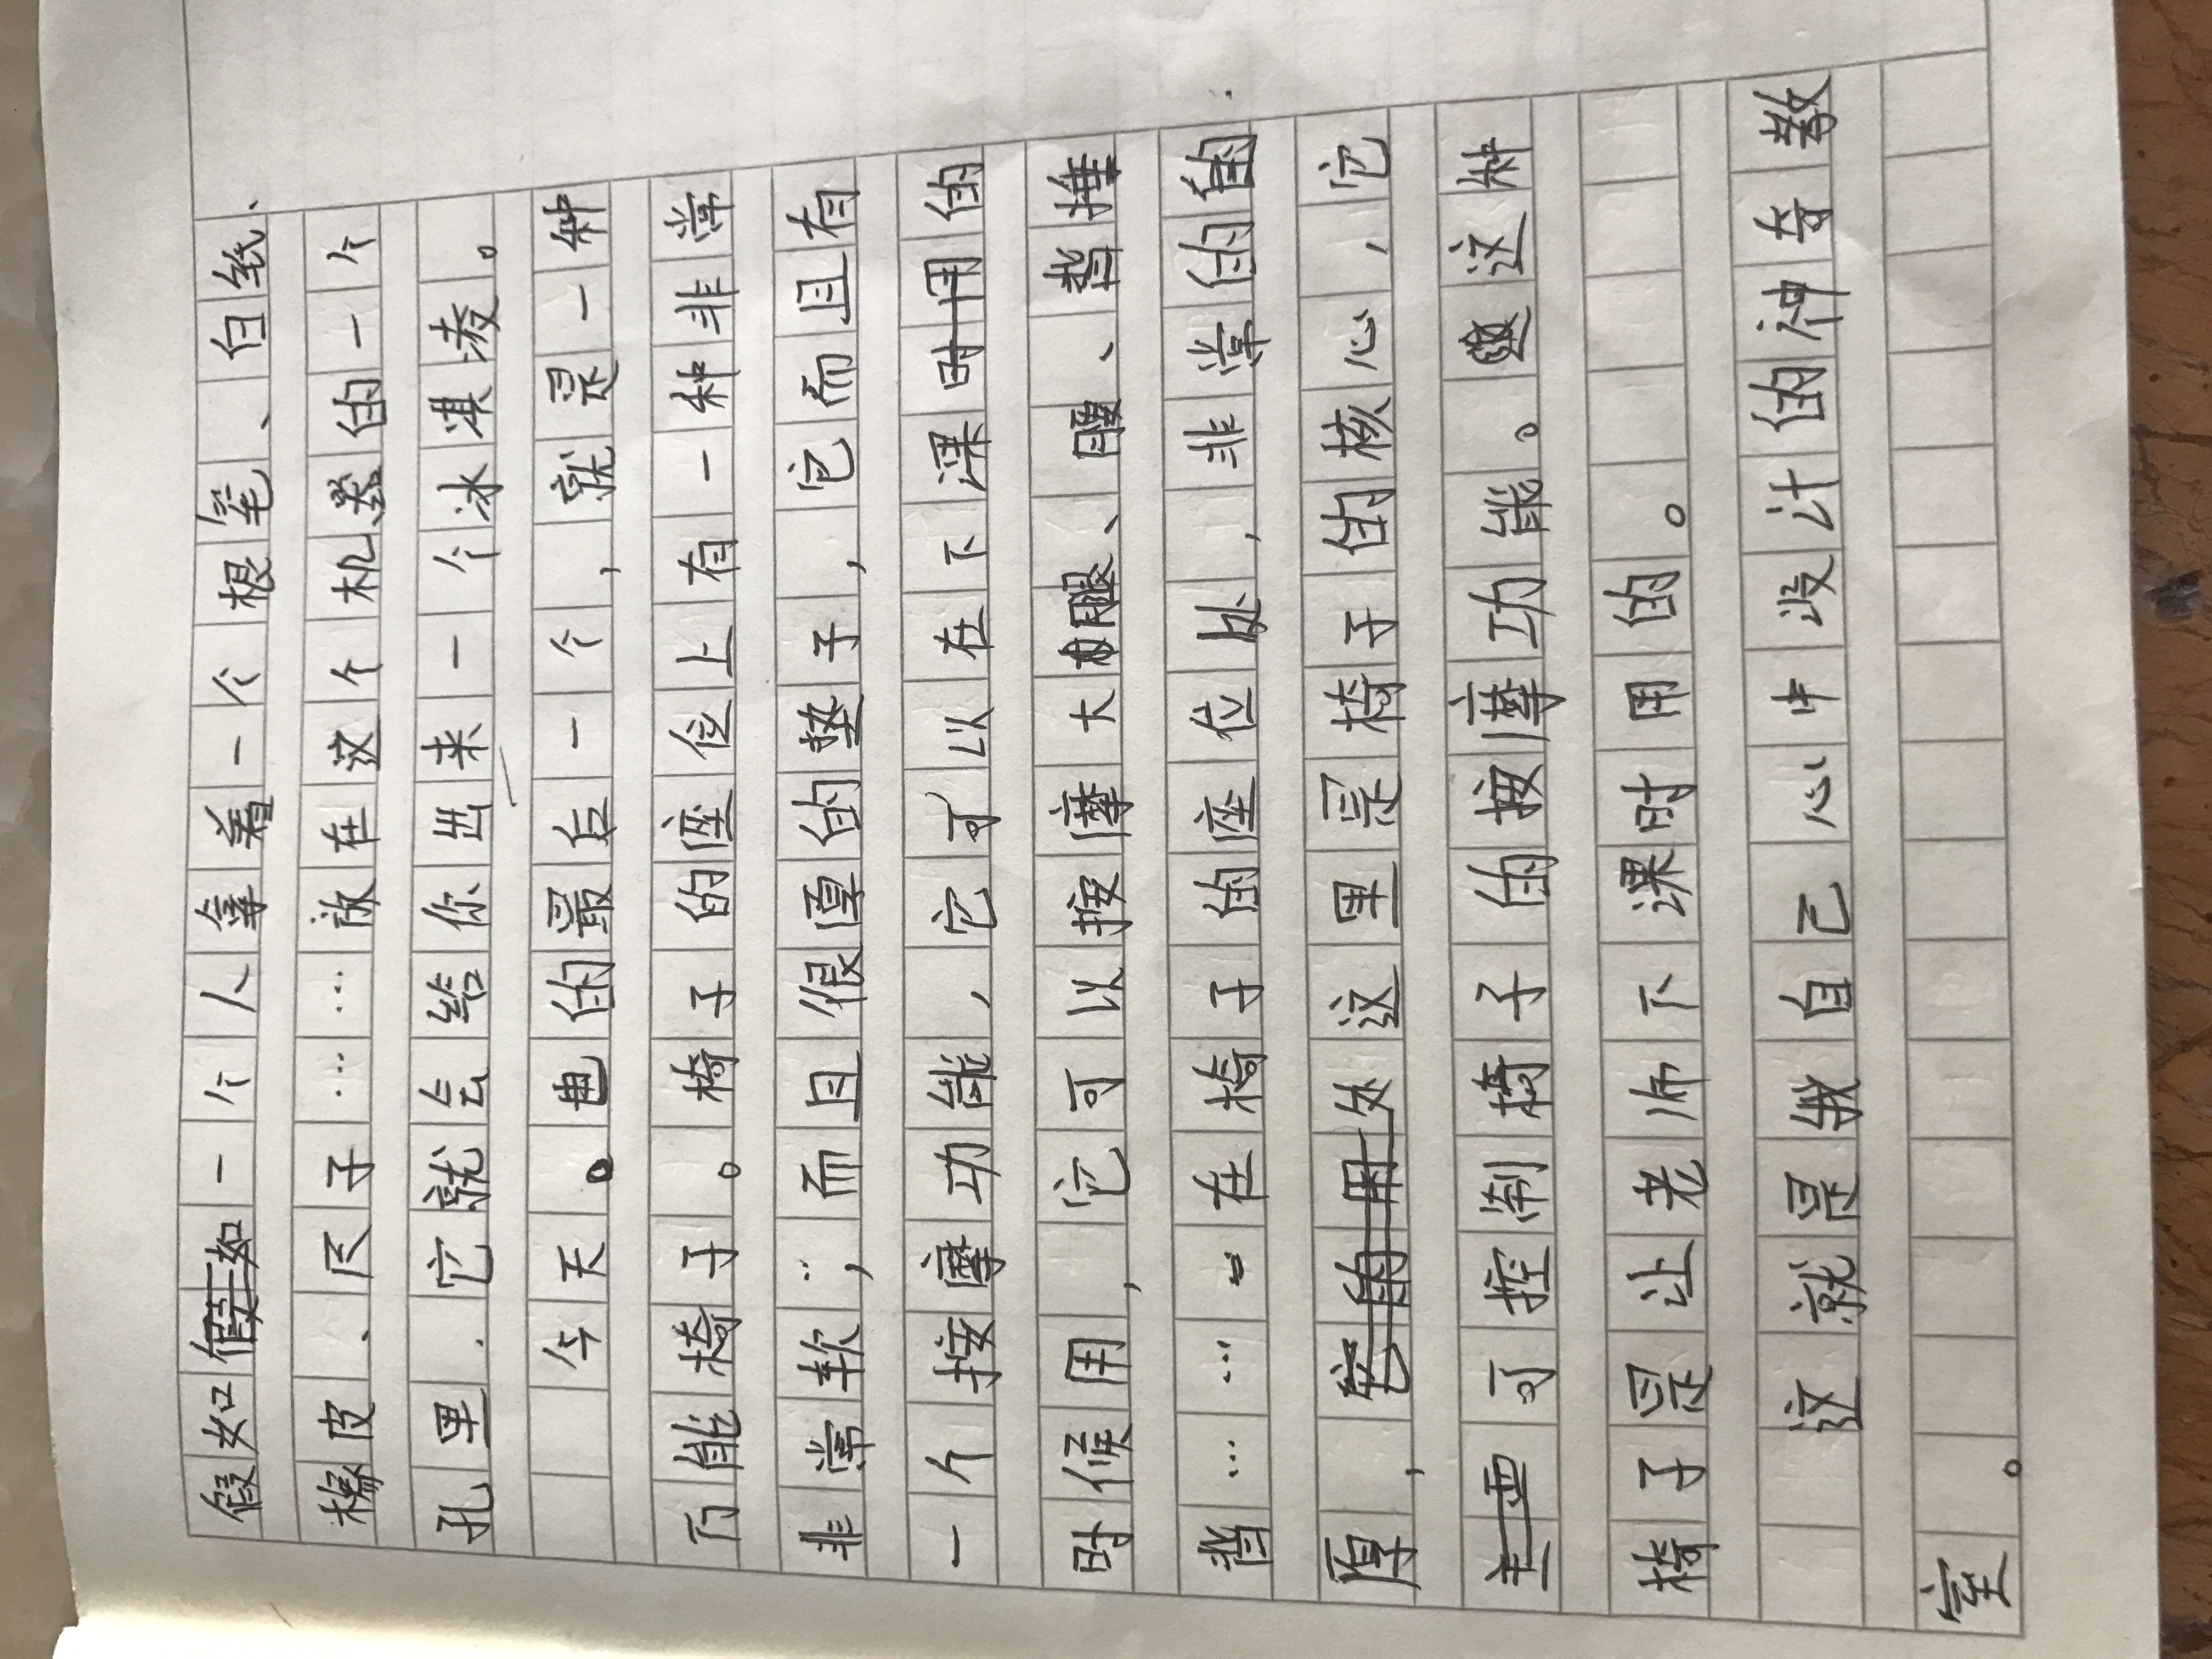 假如一个人拿着一个根笔、白纸、
橡皮、尺子……放在这个机器的一个
孔里.它就会给你出来一个冰淇凌。
今天。电的最后一个，就是一种
万能椅子。椅子的座位上有一种非常
非常软，而且很厚的垫子，它而且有
一个按摩功能，它可以在下课的
时候用，它可以按摩大腿、腰、背、捶
背……在椅子的座位处，非常的
厚，处这里是椅子的核心，它
可控制椅子的按摩功能。这种
椅子是让老师下课时用的。
这就是我自己心中设计的神奇教
室。